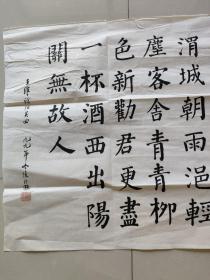 渭城朝雨浥輕
塵客舍青青柳
色新勸君更盡
一杯酒西出陽
關無故人
王維詩
九九年